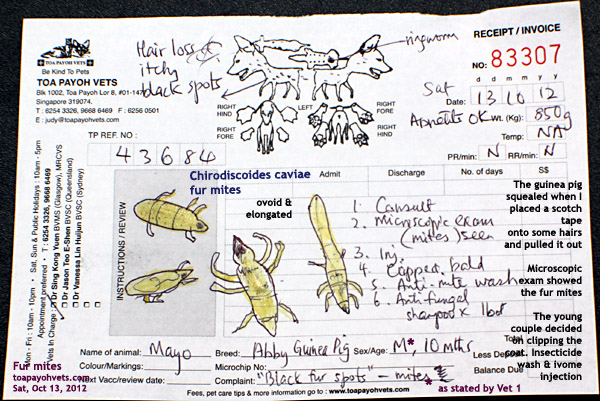 RECEIPT / INVOICE
NO: 83307
Hair loss
itchy
black spots
ringworm
Be Kind To Pets
TOA PAYOH VETS
Blk 1002, Toa Payoh Lor 8, #01-147
Singapore 319074.
T : 6254 3326, 9668 6469 F : 6256 0501
E : judy@toapayohvets.com
RIGHT HIND
LEFT HIND
RIGHT FORE
RIGHT HIND
RIGHT FORE
Sat
d d m m y y
Date: 13 10 12
Appetite OK Wt. (Kg) 850g
Temp: NA
PR/min: N RR/min: N
TP REF. NO :
43684
Admit Discharge No. of days S$
Chirodiscoides caviae
fur mites
ovoid &
elongated
INSTRUCTIONS / REVIEW
1. Consult
2. Microscopic exam
(mites) seen
3. Inj.
4. Clipper bald
5. Anti-mite wash
6. Anti-fungal
shampoo x 1 bot
The guinea pig
squealed when I
placed a scotch
tape
onto some hairs
and pulled it out
Microscopic
exam showed
the fur mites
The young
couple decided
on clipping the
coat. Insecticide
wash & ivome
injection
Mon - Fri : 10am - 10pm • Sat, Sun & Public Holidays : 10am - 5pm
Appointment preferred • T : 6254 3326, 9668 6469
Vets In Charge : Dr Sing Kong Yuen BVMS (Glasgow), MRCVS
Dr Jason Teo E-Shen BVSC (Queensland)
Dr Vanessa Lin Huijun BVSC (Sydney)
Name of animal: Mayo Breed: Abby Guinea Pig Sex/Age: M*, 10 mths Less Deposit
Colour/Markings: Microchip No: Balance Due
Next Vacc/review date: Complaint: "Black fur spots" – mites *
* as stated by Vet 1
Fees, pet care tips & more info go to : www.toapayohvets.com
Fur mites
toapayohvets.com
Sat, Oct 13, 2012